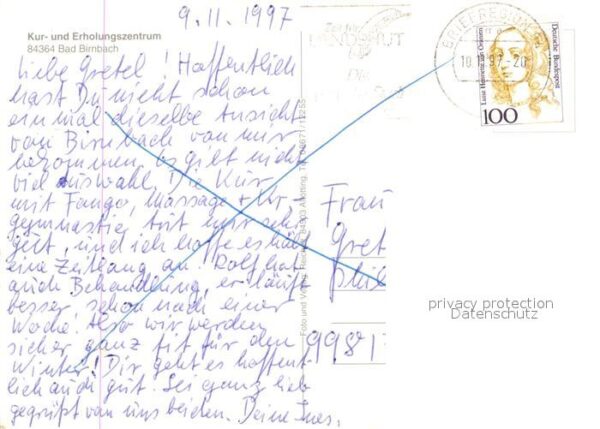 9.11.1997
Kur- und Erholungszentrum
84364 Bad Birnbach
Liebe Gretel! Hoffentlich
hast Du nicht schon
einmal dieselbe Ansicht
von Birnbach von mir
bekommen, es gibt nicht
viel Auswahl. Die Kur
mit Fango, Massage +
gymnastik tut mir sehr
gut, und ich hoffe es hält
eine Zeitlang an. Rolf hat
auch Behandlung, er läuft
besser, schon nach einer
Woche. Also wir werden
sicher ganz fit für den
Winter! Dir geht es hoffent
lich auch gut. Sei ganz lieb
gegrüßt von uns beiden. Deine Ines.
Foto und Verlag
Frau
Gret
998
LANDSHUT
BRIEFREGION
Deutsche Bundespost
Luise Henriette von Oranien
100
privacy protection
Datenschutz